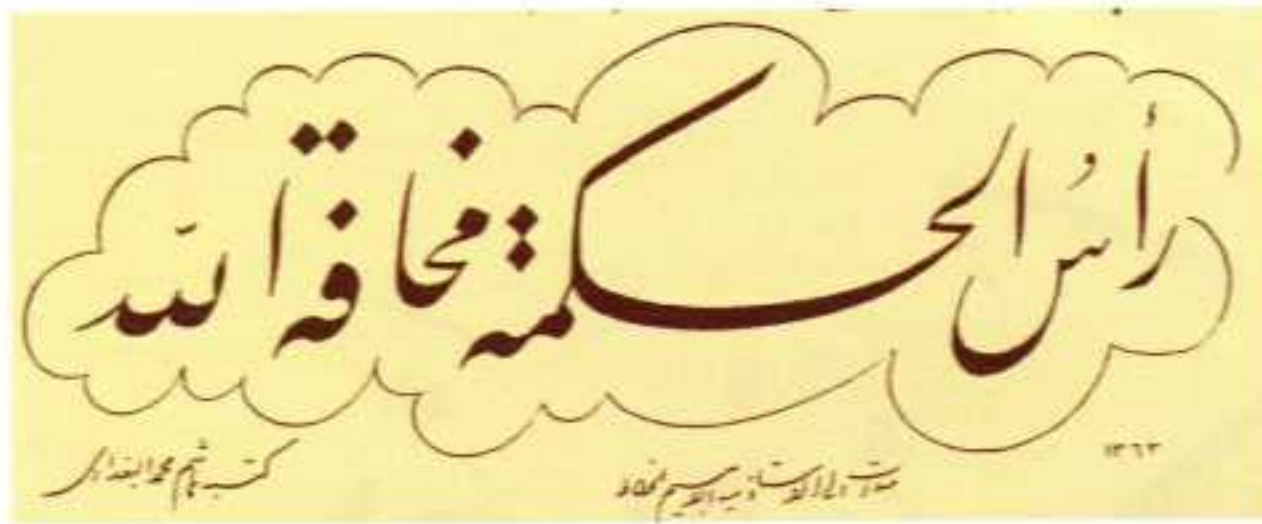 رأسُ الحكمة مخافة اللّه
١٣٦٣
الخطاط
كتبه هاشم محمد البغدادي